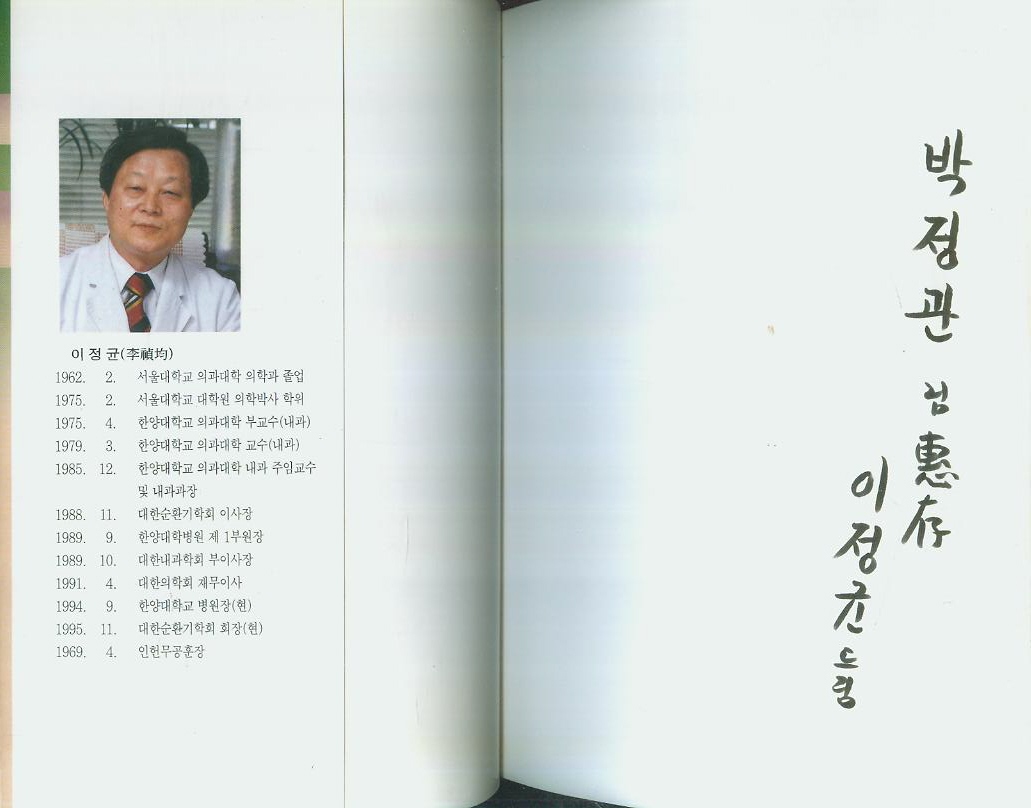 이 정 균(李禎均)
1962. 2. 서울대학교 의과대학 의학과 졸업
1975. 2. 서울대학교 대학원 의학박사 학위
1975. 4. 한양대학교 의과대학 부교수(내과)
1979. 3. 한양대학교 의과대학 교수(내과)
1985. 12. 한양대학교 의과대학 내과 주임교수
및 내과과장
1988. 11. 대한순환기학회 이사장
1989. 9. 한양대학병원 제 1부원장
1989. 10. 대한내과학회 부이사장
1991. 4. 대한의학회 재무이사
1994. 9. 한양대학교 병원장(현)
1995. 11. 대한순환기학회 회장(현)
1969. 4. 인헌무공훈장
박정관 님 惠存
이정균 드림